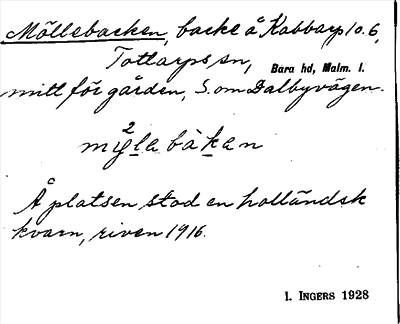 Möllebacken, backe å Kabbarp 10.6,
Tottarps sn, Bara hd, Malm. l.
mitt för gården, S. om Dalbyvägen.
2
myla bakan
Å platsen stod en holländsk
kvarn, riven 1916.
I. INGERS 1928